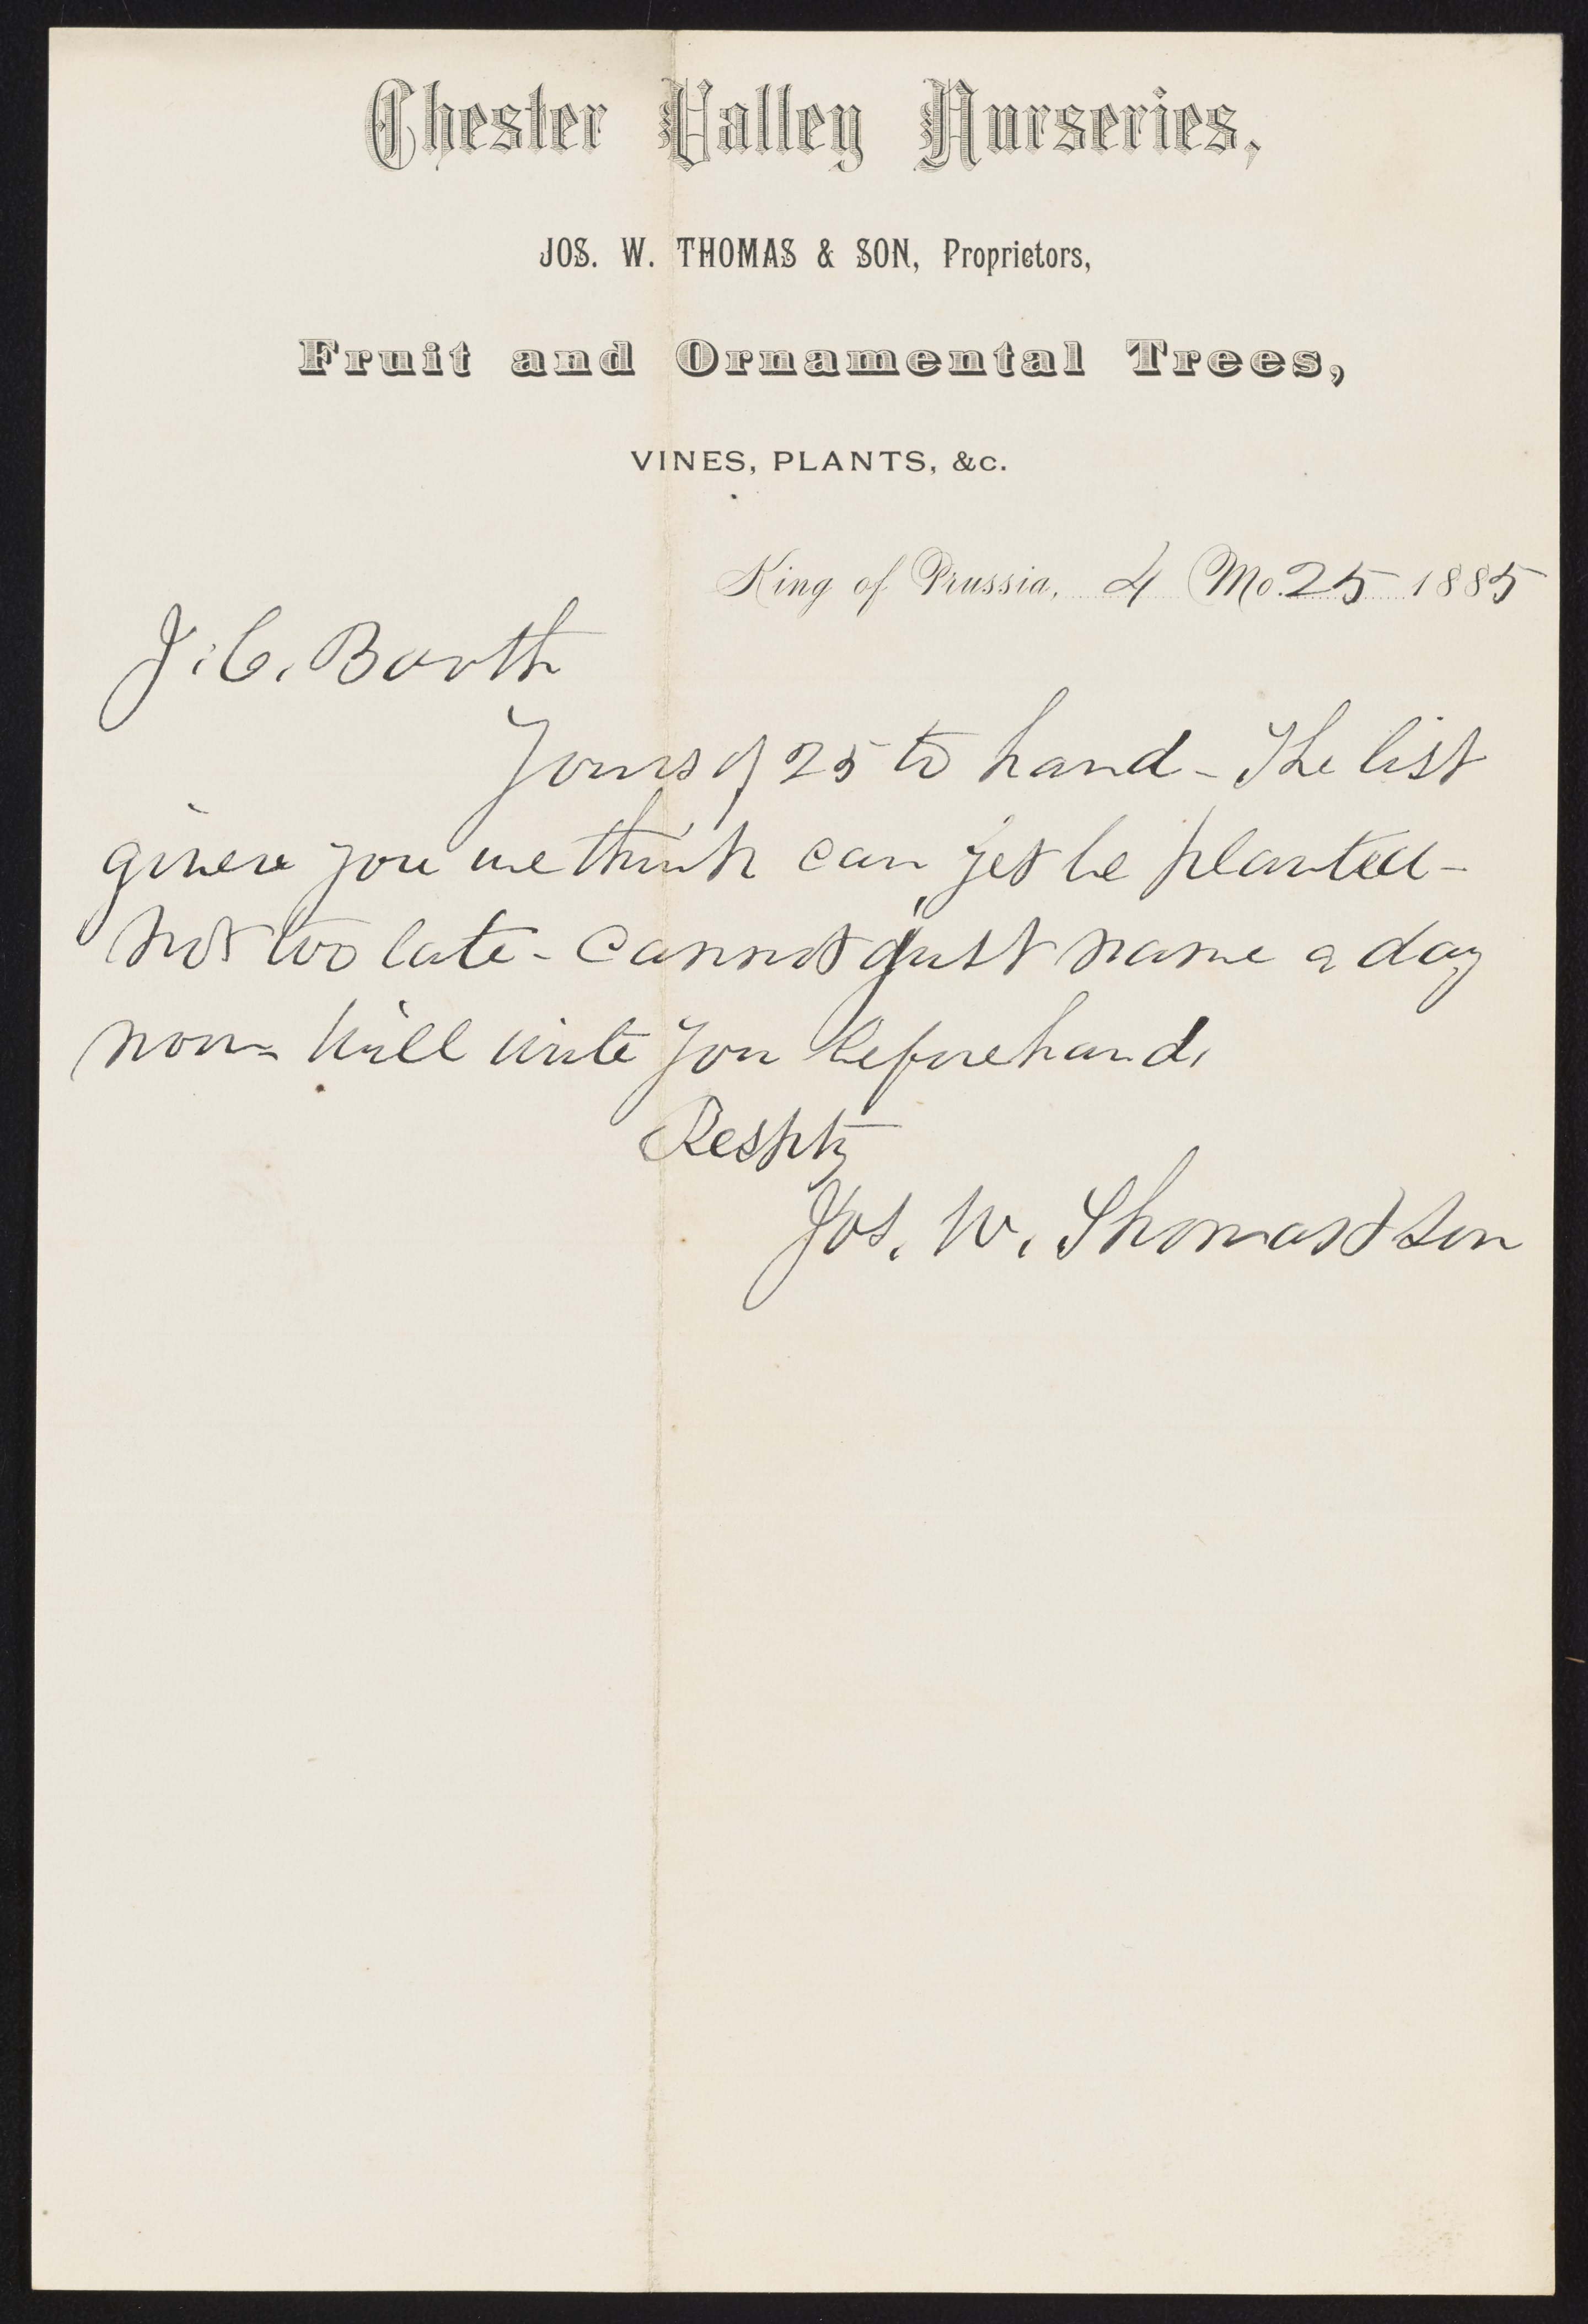 Chester Valley Nurseries,
JOS. W. THOMAS & SON, Proprietors,
Fruit and Ornamental Trees,
VINES, PLANTS, &c.
King of Prussia, 4 Mo. 25 1885
J. C. Booth
Yours of 25 to hand - The list
given you we think can yet be planted -
not too late - Cannot just name a day
now - Will write you beforehand.
Respty
Jos. W. Thomas & Son